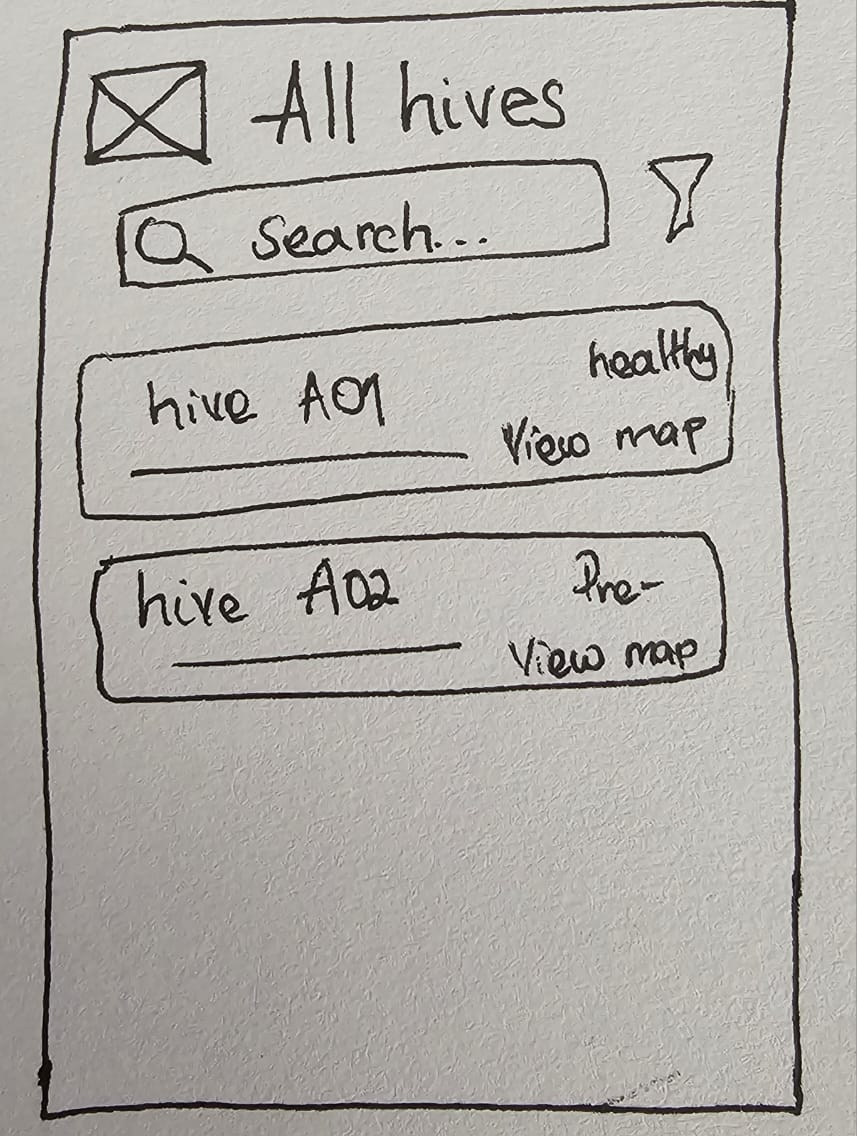 All hives
Search...
hive A01
healthy
View map
hive A02
Pre-
View map